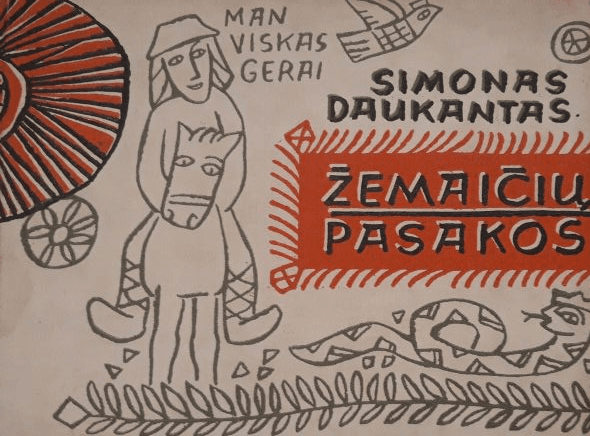 MAN
VISKAS
GERAI
SIMONAS
DAUKANTAS.
ŽEMAIČIŲ
PASAKOS